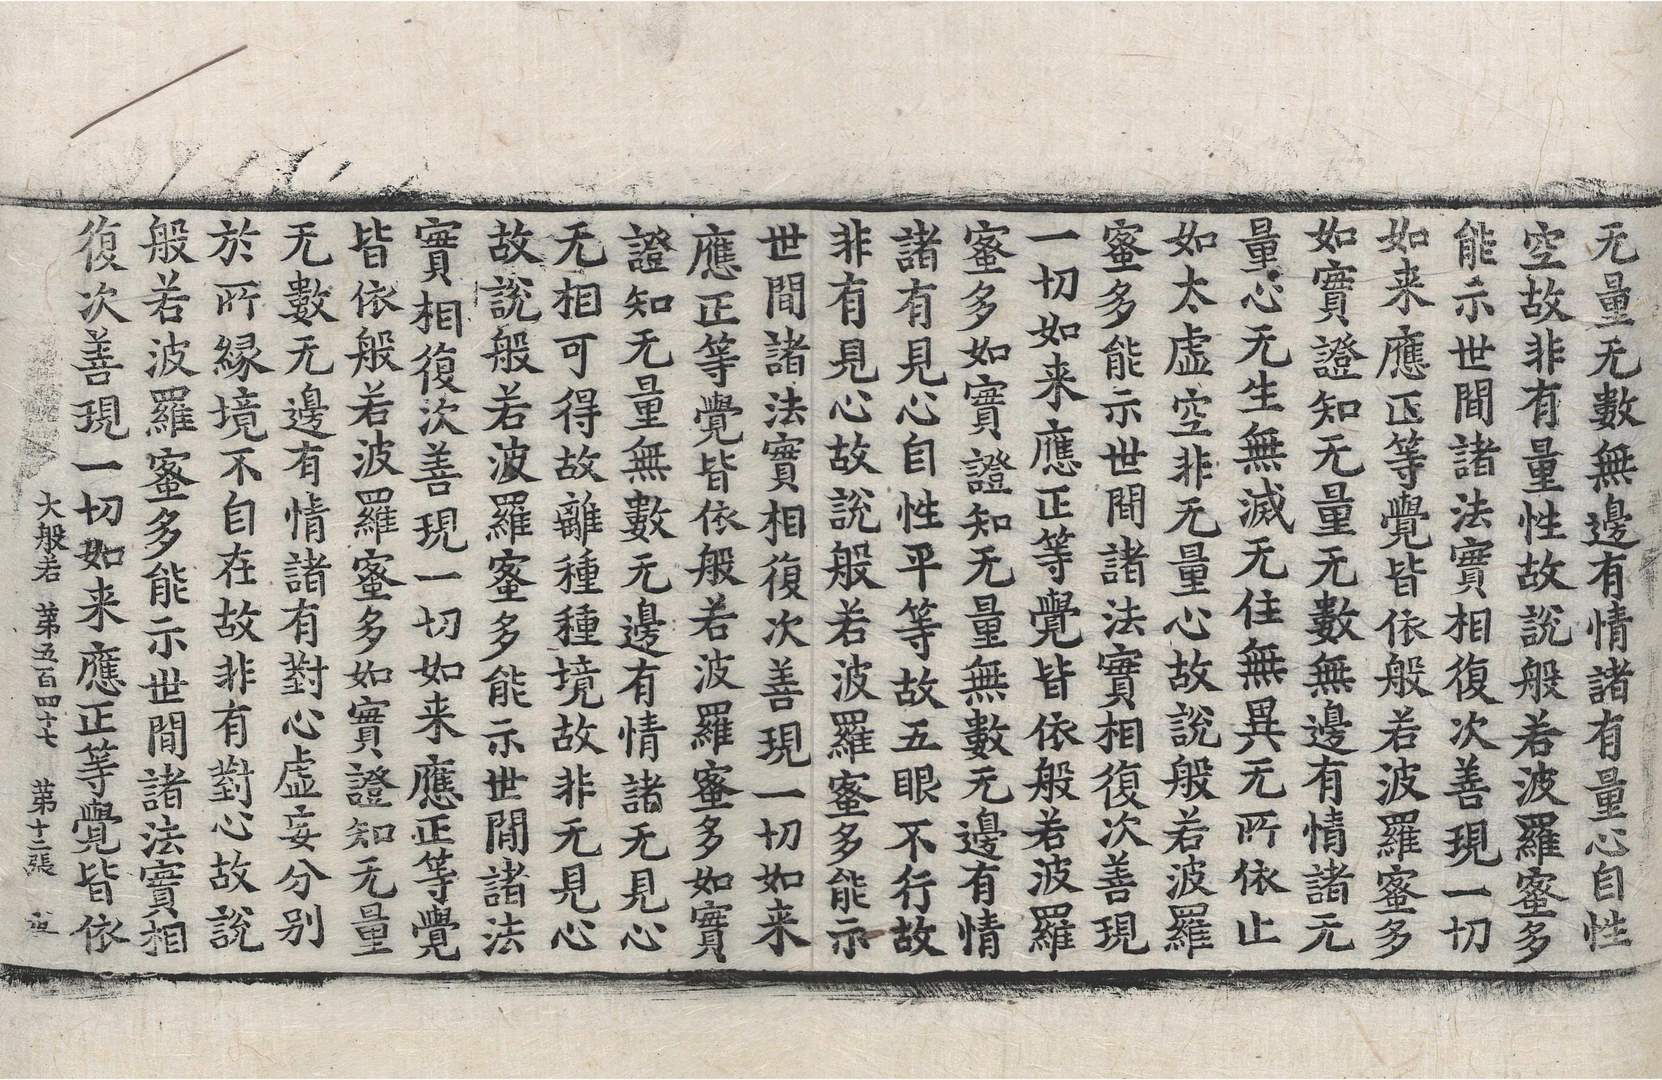 无量无數無邊有情諸有量心自性
空故非有量性故說般若波羅蜜多
能示世間諸法實相復次善現一切
如来應正等覺皆依般若波羅蜜多
如實證知无量无數無邊有情諸无
量心无生無滅无住無異无所依止
如太虛空非无量心故說般若波羅
蜜多能示世間諸法實相復次善現
一切如来應正等覺皆依般若波羅
蜜多如實證知无量無數无邊有情
諸有見心自性平等故五眼不行故
非有見心故說般若波羅蜜多能示
世間諸法實相復次善現一切如来
應正等覺皆依般若波羅蜜多如實
證知无量無數无邊有情諸无見心
无相可得故離種種境故非无見心
故說般若波羅蜜多能示世間諸法
實相復次善現一切如来應正等覺
皆依般若波羅蜜多如實證知无量
无數无邊有情諸有對心虛妄分別
於所緣境不自在故非有對心故說
般若波羅蜜多能示世間諸法實相
復次善現一切如来應正等覺皆依
大般若 第五百四十七 第十二張